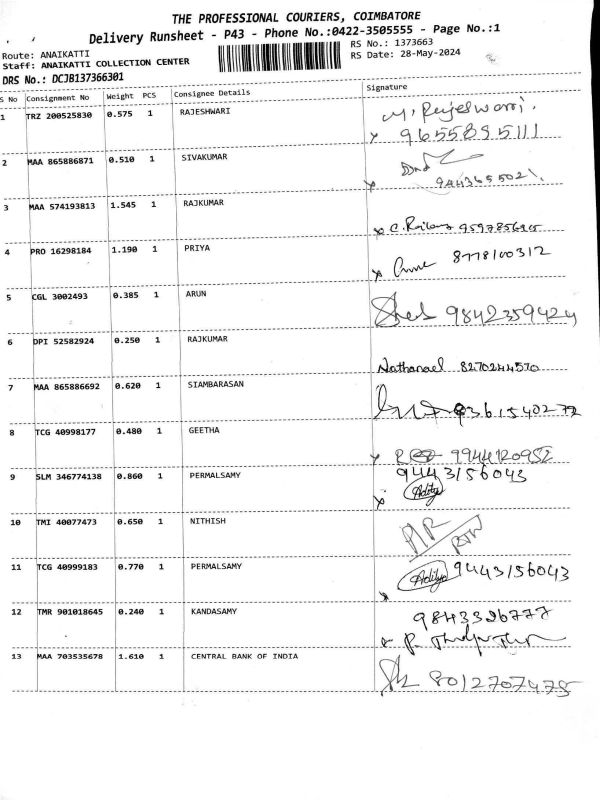 THE PROFESSIONAL COURIERS, COIMBATORE
Delivery Runsheet - P43 - Phone No.:0422-3505555 - Page No.:1
Route: ANAIKATTI
RS No.: 1373663
Staff: ANAIKATTI COLLECTION CENTER
RS Date: 28-May-2024
DRS No.: DCJB137366301
S No Consignment No Weight PCS Consignee Details Signature
1 TRZ 200525830 0.575 1 RAJESHWARI M. Rajeswari.
x 9655895111
2 MAA 865886871 0.510 1 SIVAKUMAR
x
3 MAA 574193813 1.545 1 RAJKUMAR
x
4 PRO 16298184 1.190 1 PRIYA 8778100312
x
5 CGL 3002493 0.385 1 ARUN 9842359424
6 DPI 52582924 0.250 1 RAJKUMAR
Nathanael 8270244570
7 MAA 865886692 0.620 1 SIAMBARASAN
9361540277
8 TCG 40998177 0.480 1 GEETHA
x 9944120952
9 SLM 346774138 0.860 1 PERMALSAMY 9443156043
x Aditya
10 TMI 40077473 0.650 1 NITHISH
11 TCG 40999183 0.770 1 PERMALSAMY Aditya 9443156043
12 TMR 901018645 0.240 1 KANDASAMY 9843326777
13 MAA 703535678 1.610 1 CENTRAL BANK OF INDIA 8012707475